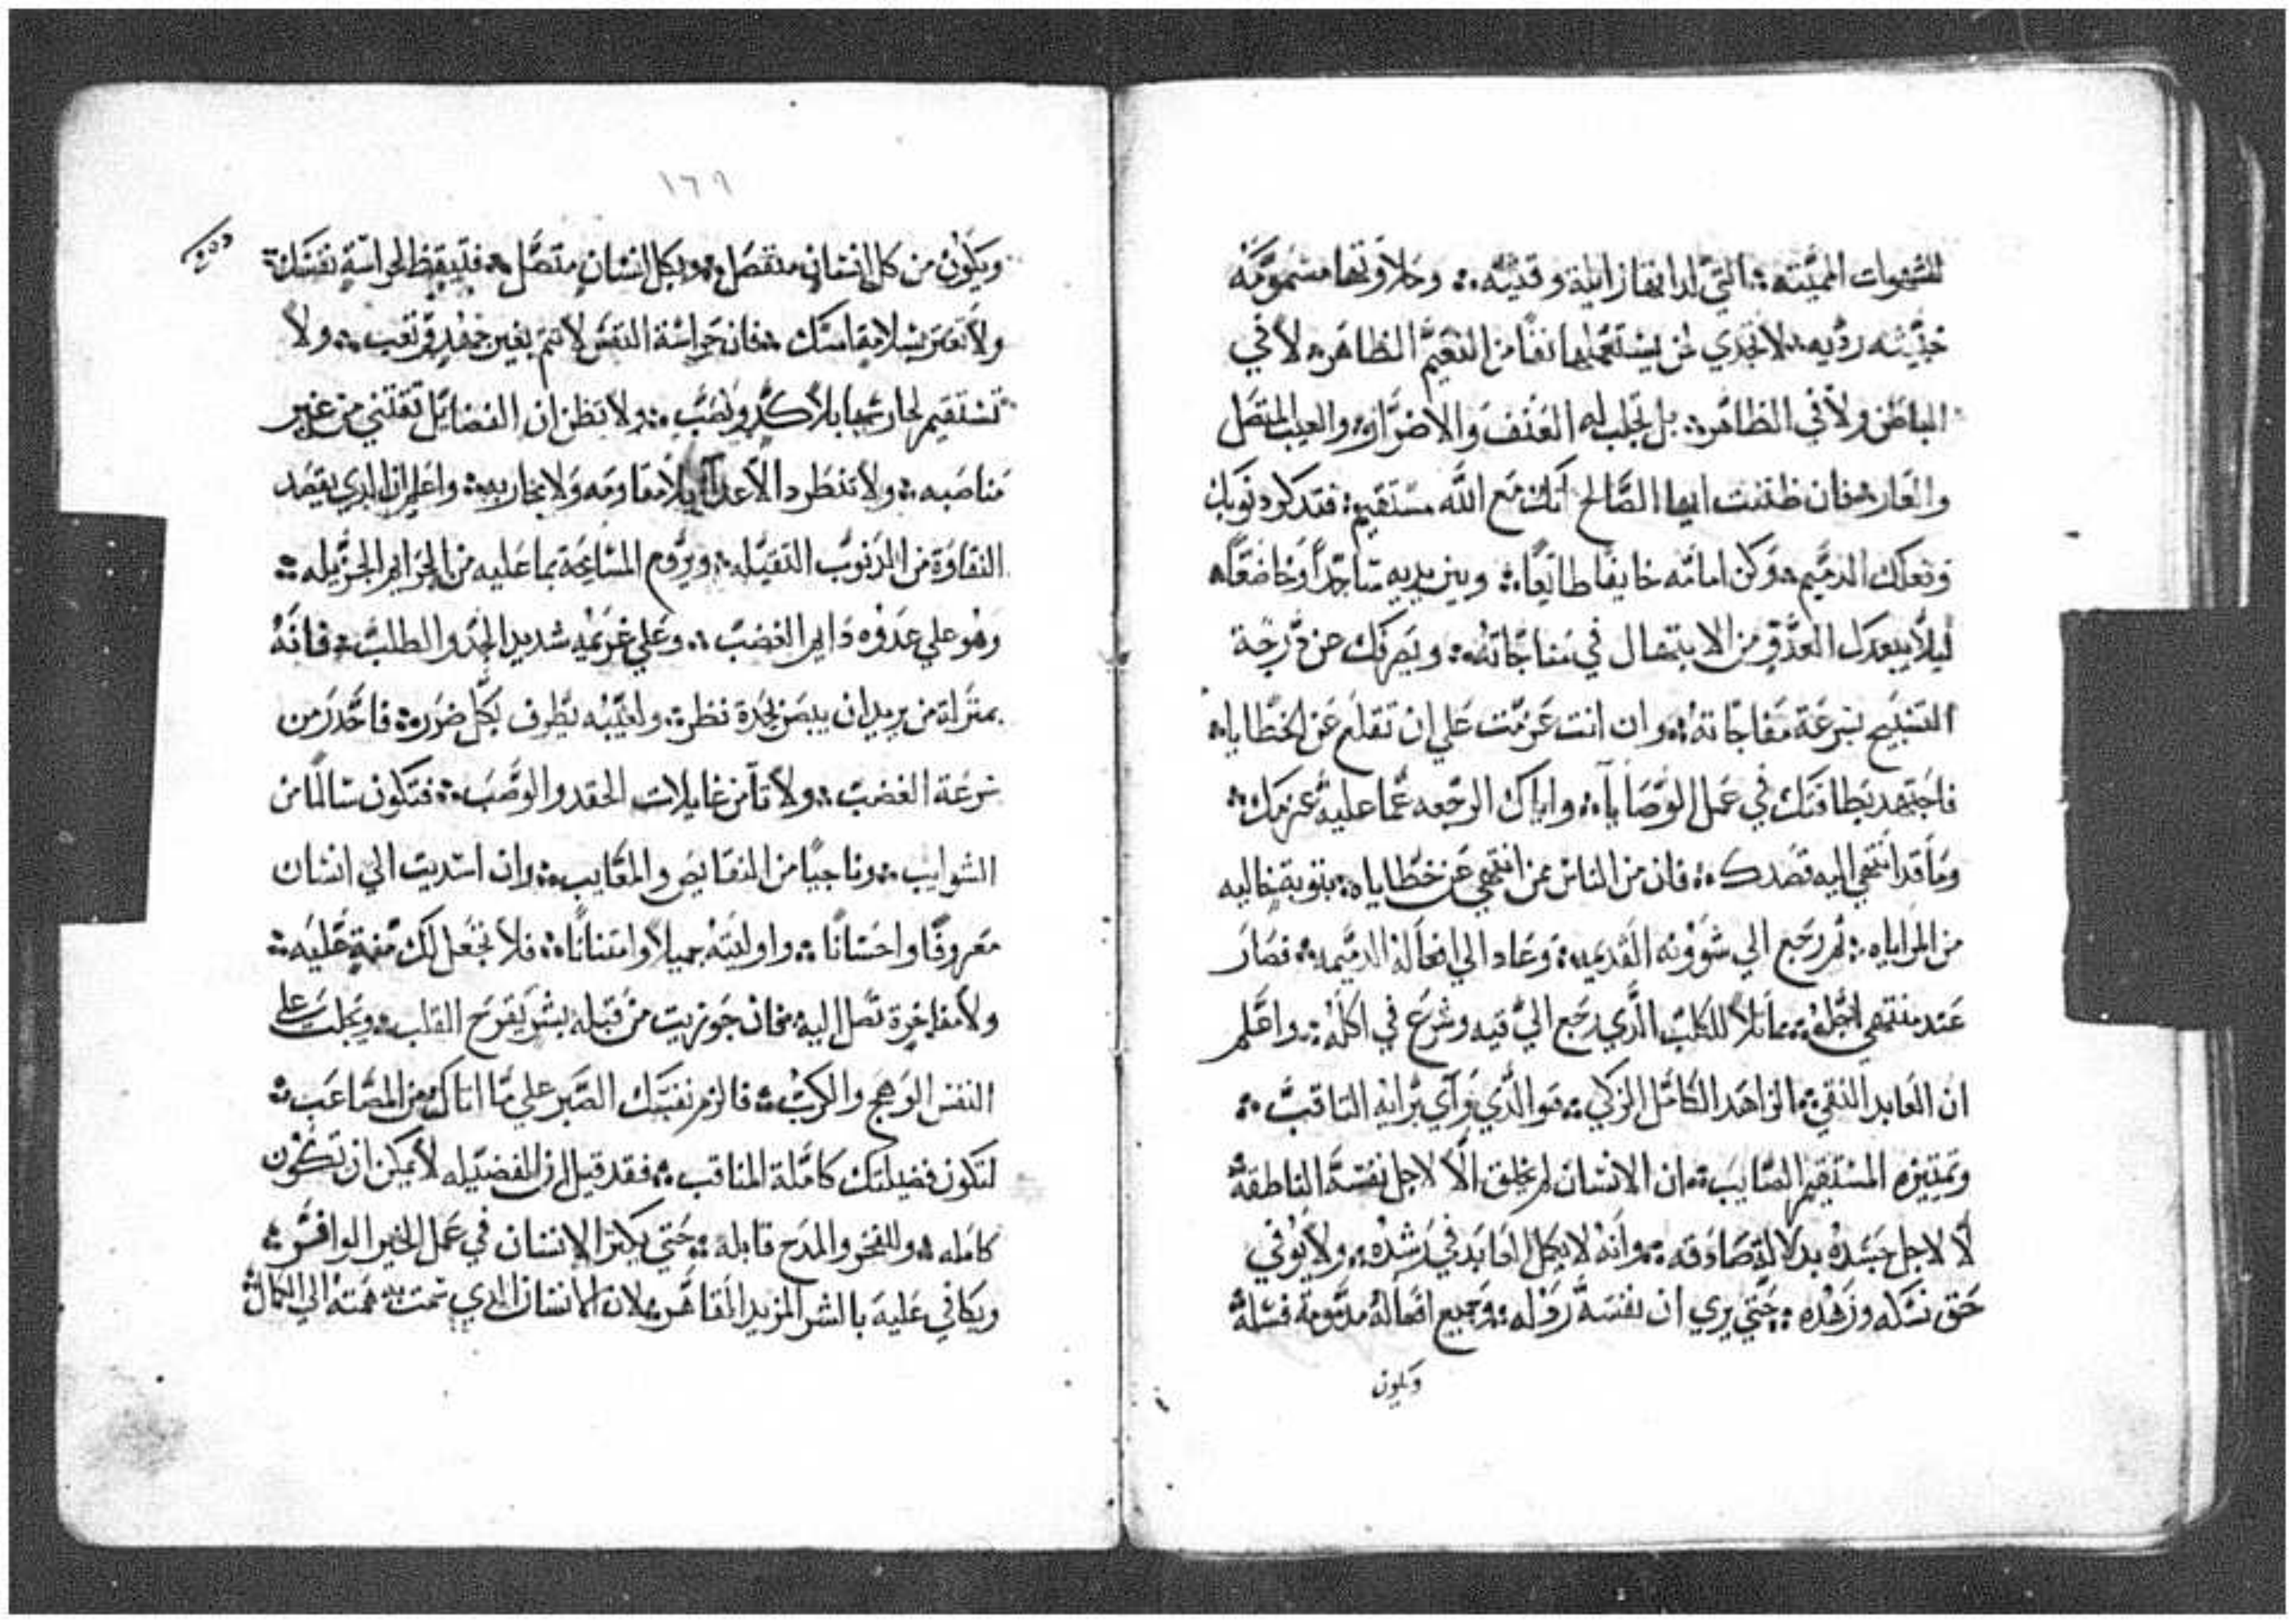 للشهوات المميته؛ التي لذاتها زايلة وقتيه؛ وحلاوتها مسمومه
خبيثه رديه؛ لا تجدي لمن يستعملها نفعًا من النعيم الظاهر؛ لا في
الباطن ولا في الظاهر؛ بل تجلب له العنف والاضرار؛ والعيب المتصل
والعار؛ فان ظننت ايها الصالح انك مع الله مستقيم؛ فتذكر ذنوبك
وفعلك الدميم؛ وكن امامه خايفًا طايعًا؛ وبين يديه ساجدًا وخاضعًا؛
ليلا يبعدك العدو من الابتهال في مناجاته؛ ويصرفك عن درجة
التسبيح بسرعة مفاجاته؛ وان انت عزمت علي ان تقلع عن الخطايا؛
فاجتهد بطاقتك في عمل الوصايا؛ واياك الرجعه عما عليه عزمك؛
وما قد انتهي اليه قصدك؛ فان من الناس من انتهي عن خطاياه؛ بتوبة خاليه
من المراياه؛ ثم رجع الي شوونه القديمه؛ وعاد الي افعاله الدميمه؛ فصار
عند منتهي اجله؛ مماثلا للكلب الذي رجع الي قيه وشرع في اكله؛ واعلم
ان العابد النقي؛ الزاهد الكامل الزكي؛ هو الذي راي برايه الثاقب؛
وتمييزه المستقيم الصايب؛ ان الانسان لم يخلق الا لاجل نفسه الناطقة
لا لاجل جسده بدلالة صادقه؛ وانه لا يكمل العابد في رشده؛ ولا يوفي
حق نسكه وزهده؛ حتي يري ان نفسه رذله؛ وجميع افعاله مدمومة فشله
ويكون
١٦٩
ويكون من كل انسان منفصل؛ وبكل انسان متصل؛ فتيقظ لحراسة نفسك؛
ولا تغتر بسلامة اسك؛ فان حراسة النفس لا تتم بغير جهد وتعب؛ ولا
تستقيم لحارسها بلا كد ونصب؛ ولا تظن ان الفضايل تقتني من غير
مناصبه؛ ولا تنطرد الاعدآ بلا مقاومه ولا محاربه؛ واعلم ان الذي يقصد
النقاوة من الذنوب الثقيله؛ ويروم المسامحة بما عليه من الجرايم الجزيله؛
وهو علي عدوه دايم الغضب؛ وعلي غريمه شديد الجد والطلب؛ فانه
بمنزلة من يريد ان يبصر بحدة نظره؛ ولعينيه يطرف بكل ضرره؛ فاحدر من
سرعة الغضب؛ ولا تامن غايلات الحقد والوصب؛ فتكون سالمًا من
الشوايب؛ وناجيًا من النقايص والمعايب؛ وان اسديت الي انسان
معروفًا واحسانًا؛ واوليته جميلا وامتنانًا؛ فلا تجعل لك منة عليه؛
ولا مفاخرة تصل اليه؛ فان جوزيت من قبله بشر يقرح القلب؛ ويجلب علي
النفس الوهج والكرب؛ فالزم نفسك الصبر علي ما اتاك من المصاعب؛
لتكون فضيلتك كاملة المناقب؛ فقد قيل ان الفضيله لا يمكن ان تكون
كامله؛ وللفخر والمدح قابله؛ حتي يكثر الانسان في عمل الخير الوافر؛
ويكافي عليه بالشر المزيد القاهر؛ لان الانسان الذي سمت به همته الي الكمال